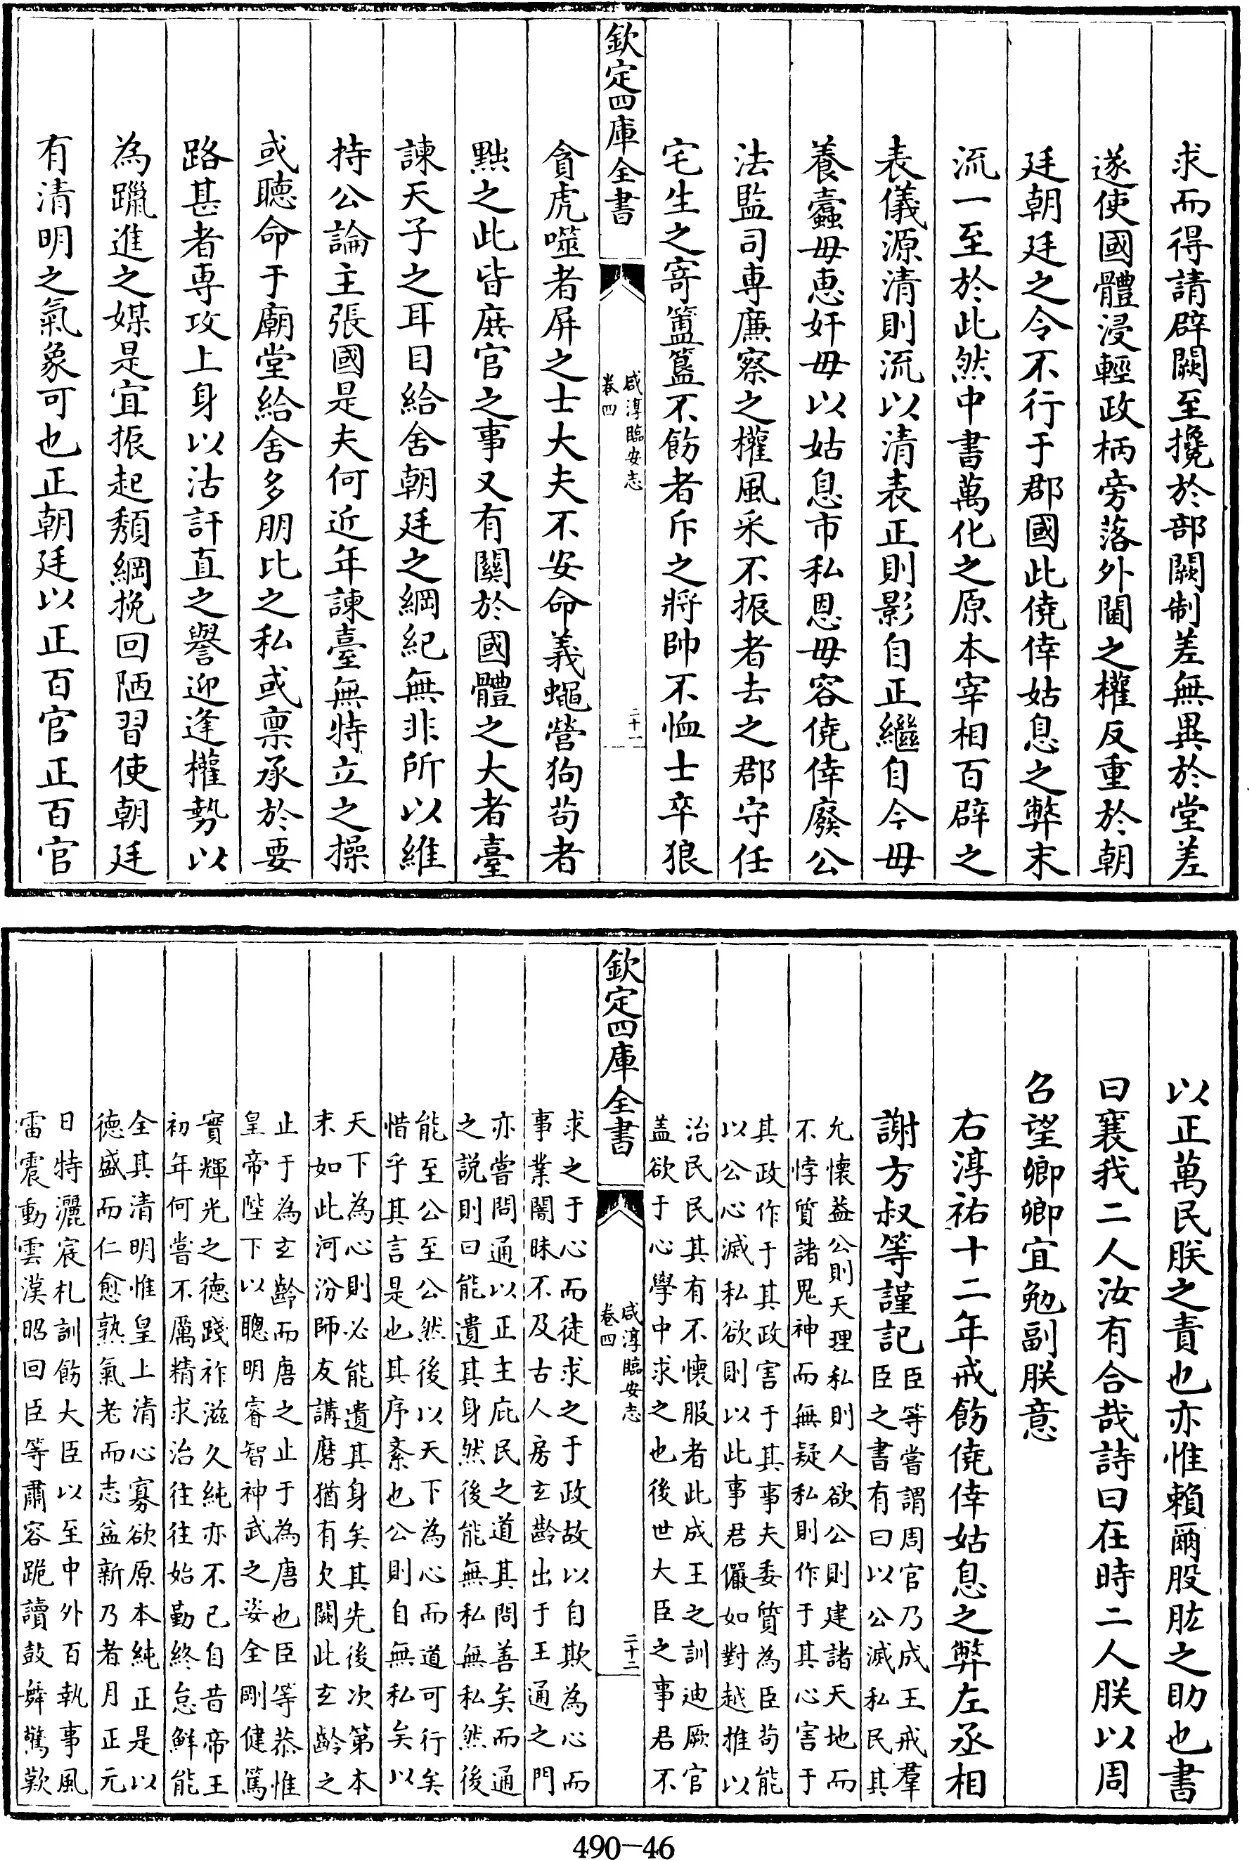 求而得請辟闕至攙於部闕制差無異於堂差
遂使國體浸輕政柄旁落外閫之權反重於朝
廷朝廷之令不行于郡國此僥倖姑息之弊末
流一至於此然中書萬化之原本宰相百辟之
表儀源清則流以清表正則影自正繼自今毋
養蠹毋惠奸毋以姑息市私恩毋容僥倖廢公
法監司專廉察之權風采不振者去之郡守任
宅生之寄簠簋不飭者斥之將帥不恤士卒狼
欽定四庫全書
咸淳臨安志
卷四
二十一
貪虎噬者屏之士大夫不安命義蠅營狗苟者
黜之此皆庶官之事又有關於國體之大者臺
諫天子之耳目給舍朝廷之綱紀無非所以維
持公論主張國是夫何近年諫臺無特立之操
或聽命于廟堂給舍多朋比之私或禀承於要
路甚者專攻上身以沽訐直之譽迎逢權勢以
為躐進之媒是宜振起頽綱挽回陋習使朝廷
有清明之氣象可也正朝廷以正百官正百官
以正萬民朕之責也亦惟賴爾股肱之助也書
曰襄我二人汝有合哉詩曰在時二人朕以周
召望卿卿宜勉副朕意
右淳祐十二年戒飭僥倖姑息之弊左丞相
謝方叔等謹記
臣等嘗謂周官乃成王戒羣
臣之書有曰以公滅私民其
允懷葢公則天理私則人欲公則建諸天地而
不悖質諸鬼神而無疑私則作于其心害于
其政作于其政害于其事夫委質為臣苟能
以公心滅私欲則以此事君儼如對越推以
治民民其有不懷服者此成王之訓迪厥官
蓋欲于心學中求之也後世大臣之事君不
欽定四庫全書
咸淳臨安志
卷四
二十二
求之于心而徒求之于政故以自欺為心而
事業闇昧不及古人房玄齡出于王通之門
亦嘗問通以正主庇民之道其問善矣而通
之說則曰能遺其身然後能無私無私然後
能至公至公然後以天下為心而道可行矣
惜乎其言是也其序紊也公則自無私矣以
天下為心則必能遺其身矣其先後次第本
末如此河汾師友講磨猶有欠闕此玄齡之
止于為玄齡而唐之止于為唐也臣等恭惟
皇帝陛下以聰明睿智神武之姿全剛健篤
實輝光之德踐祚滋久純亦不已自昔帝王
初年何嘗不厲精求治往往始勤終怠鮮能
全其清明惟皇上清心寡欲原本純正是以
德盛而仁愈熟氣老而志益新乃者月正元
日特灑宸札訓飭大臣以至中外百執事風
雷震動雲漢昭回臣等肅容跪讀鼓舞驚歎
490-46